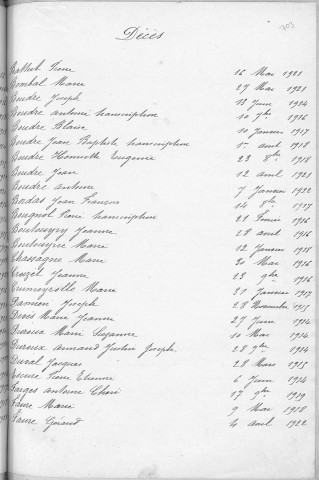 103
Décès
Battut Pierre 16 Mai 1921
Bombal Marie 27 Mai 1921
Boudre Joseph 18 Juin 1914
Boudre antoine transcription 10 9bre 1916
Boudre Blaise 10 Janvier 1917
Boudre Jean Baptiste transcription 1er avril 1918
Boudre Henriette Eugénie 23 8bre 1918
Boudre Jean 12 avril 1921
Boudre antoine 7 Janvier 1922
Jean François 14 8bre 1917
Bougnol Pierre transcription 21 Février 1916
Jeanne 28 avril 1916
Marie 12 Janvier 1918
Chassagne Marie 30 Mai 1916
Jeanne 23 9bre 1916
Crumeyrolle Marie 21 Janvier 1917
Damien Joseph 28 Novembre 1915
Denis Marie Jeanne 27 Juin 1914
Duroux Marie Suzanne 10 Mai 1914
Duroux armand Justin Joseph 28 9bre 1914
Duval Jacques 28 Mars 1915
Pierre Etienne 6 Juin 1914
Farges antoine 17 9bre 1919
Faure Marie 9 Mai 1918
Faure Géraud 4 avril 1922